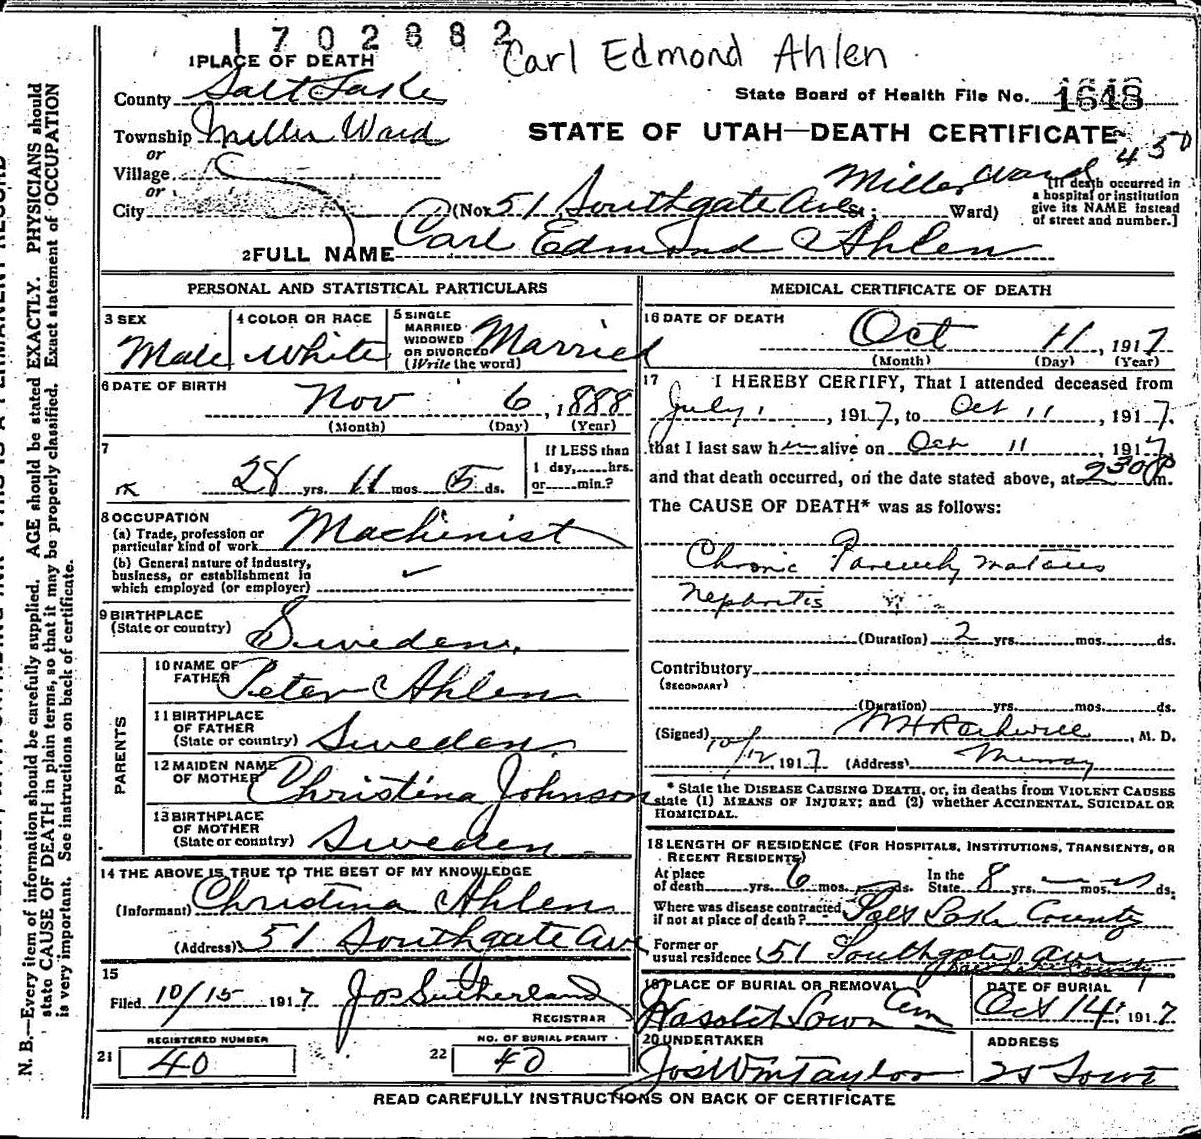 1702882
Carl Edmond Ahlen
1 PLACE OF DEATH
County Salt Lake
State Board of Health File No. 1648
Township Miller Ward
STATE OF UTAH—DEATH CERTIFICATE
450
or
Village
or
City
Miller Ward
(No. 51 Southgate Ave St.; Ward)
[If death occurred in
a hospital or institution
give its NAME instead
of street and number.]
2 FULL NAME Carl Edmond Ahlen
PERSONAL AND STATISTICAL PARTICULARS
3 SEX
Male
4 COLOR OR RACE
White
5 SINGLE
MARRIED
WIDOWED
OR DIVORCED
(Write the word)
Married
6 DATE OF BIRTH
Nov 6, 1888
(Month) (Day) (Year)
7
28 yrs. 11 mos. 5 ds.
If LESS than
1 day, hrs.
or min.?
8 OCCUPATION
(a) Trade, profession or
particular kind of work Machinist
(b) General nature of industry,
business, or establishment in
which employed (or employer) ✓
9 BIRTHPLACE
(State or country) Sweden
PARENTS
10 NAME OF
FATHER Peter Ahlen
11 BIRTHPLACE
OF FATHER
(State or country) Sweden
12 MAIDEN NAME
OF MOTHER Christina Johnson
13 BIRTHPLACE
OF MOTHER
(State or country) Sweden
14 THE ABOVE IS TRUE TO THE BEST OF MY KNOWLEDGE
(Informant) Christina Ahlen
(Address) 51 Southgate Ave
15
Filed 10/15 1917 Jos Sutherland
REGISTRAR
21
REGISTERED NUMBER
40
22
NO. OF BURIAL PERMIT
40
MEDICAL CERTIFICATE OF DEATH
16 DATE OF DEATH
Oct 11, 1917
(Month) (Day) (Year)
17 I HEREBY CERTIFY, That I attended deceased from
July 1, 1917, to Oct 11, 1917.
that I last saw him alive on Oct 11, 1917
and that death occurred, on the date stated above, at 230 P m.
The CAUSE OF DEATH* was as follows:
Chronic Parenchymatous
Nephritis
(Duration) 2 yrs. mos. ds.
Contributory
(SECONDARY)
(Duration) yrs. mos. ds.
(Signed) M. D.
10/12, 1917 (Address) Murray
* State the DISEASE CAUSING DEATH, or, in deaths from VIOLENT CAUSES
state (1) MEANS OF INJURY; and (2) whether ACCIDENTAL, SUICIDAL OR
HOMICIDAL.
18 LENGTH OF RESIDENCE (FOR HOSPITALS, INSTITUTIONS, TRANSIENTS, OR
RECENT RESIDENTS)
At place
of death yrs. 6 mos. ds.
In the
State 8 yrs. mos. ds.
Where was disease contracted
if not at place of death? Salt Lake County
Former or
usual residence 51 Southgate Ave
Salt Lake County
19 PLACE OF BURIAL OR REMOVAL
Lawn Cem
DATE OF BURIAL
Oct 14, 1917
20 UNDERTAKER
Jos Wm Taylor
ADDRESS
READ CAREFULLY INSTRUCTIONS ON BACK OF CERTIFICATE
N. B.—Every item of information should be carefully supplied. AGE should be stated EXACTLY. PHYSICIANS should
state CAUSE OF DEATH in plain terms, so that it may be properly classified. Exact statement of OCCUPATION
is very important. See instructions on back of certificate.